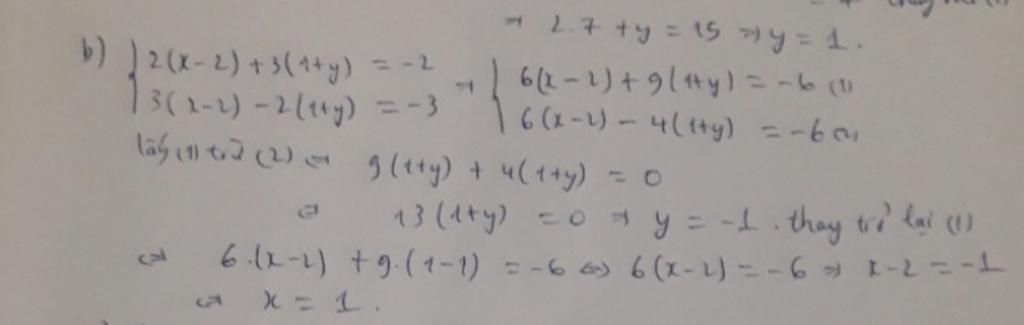 ⇒ 2.7 + y = 15 ⇒ y = 1.
b) { 2(x-2) + 3(1+y) = -2 ⇒ { 6(x-2) + 9(1+y) = -6 (1)
3(x-2) - 2(1+y) = -3 6(x-2) - 4(1+y) = -6 (2)
lấy (1) trừ (2) ⇔ 9(1+y) + 4(1+y) = 0
⇔ 13(1+y) = 0 ⇒ y = -1. thay trở lại (1)
⇔ 6.(x-2) + 9.(1-1) = -6 ⇔ 6(x-2) = -6 ⇒ x-2 = -1
⇔ x = 1.